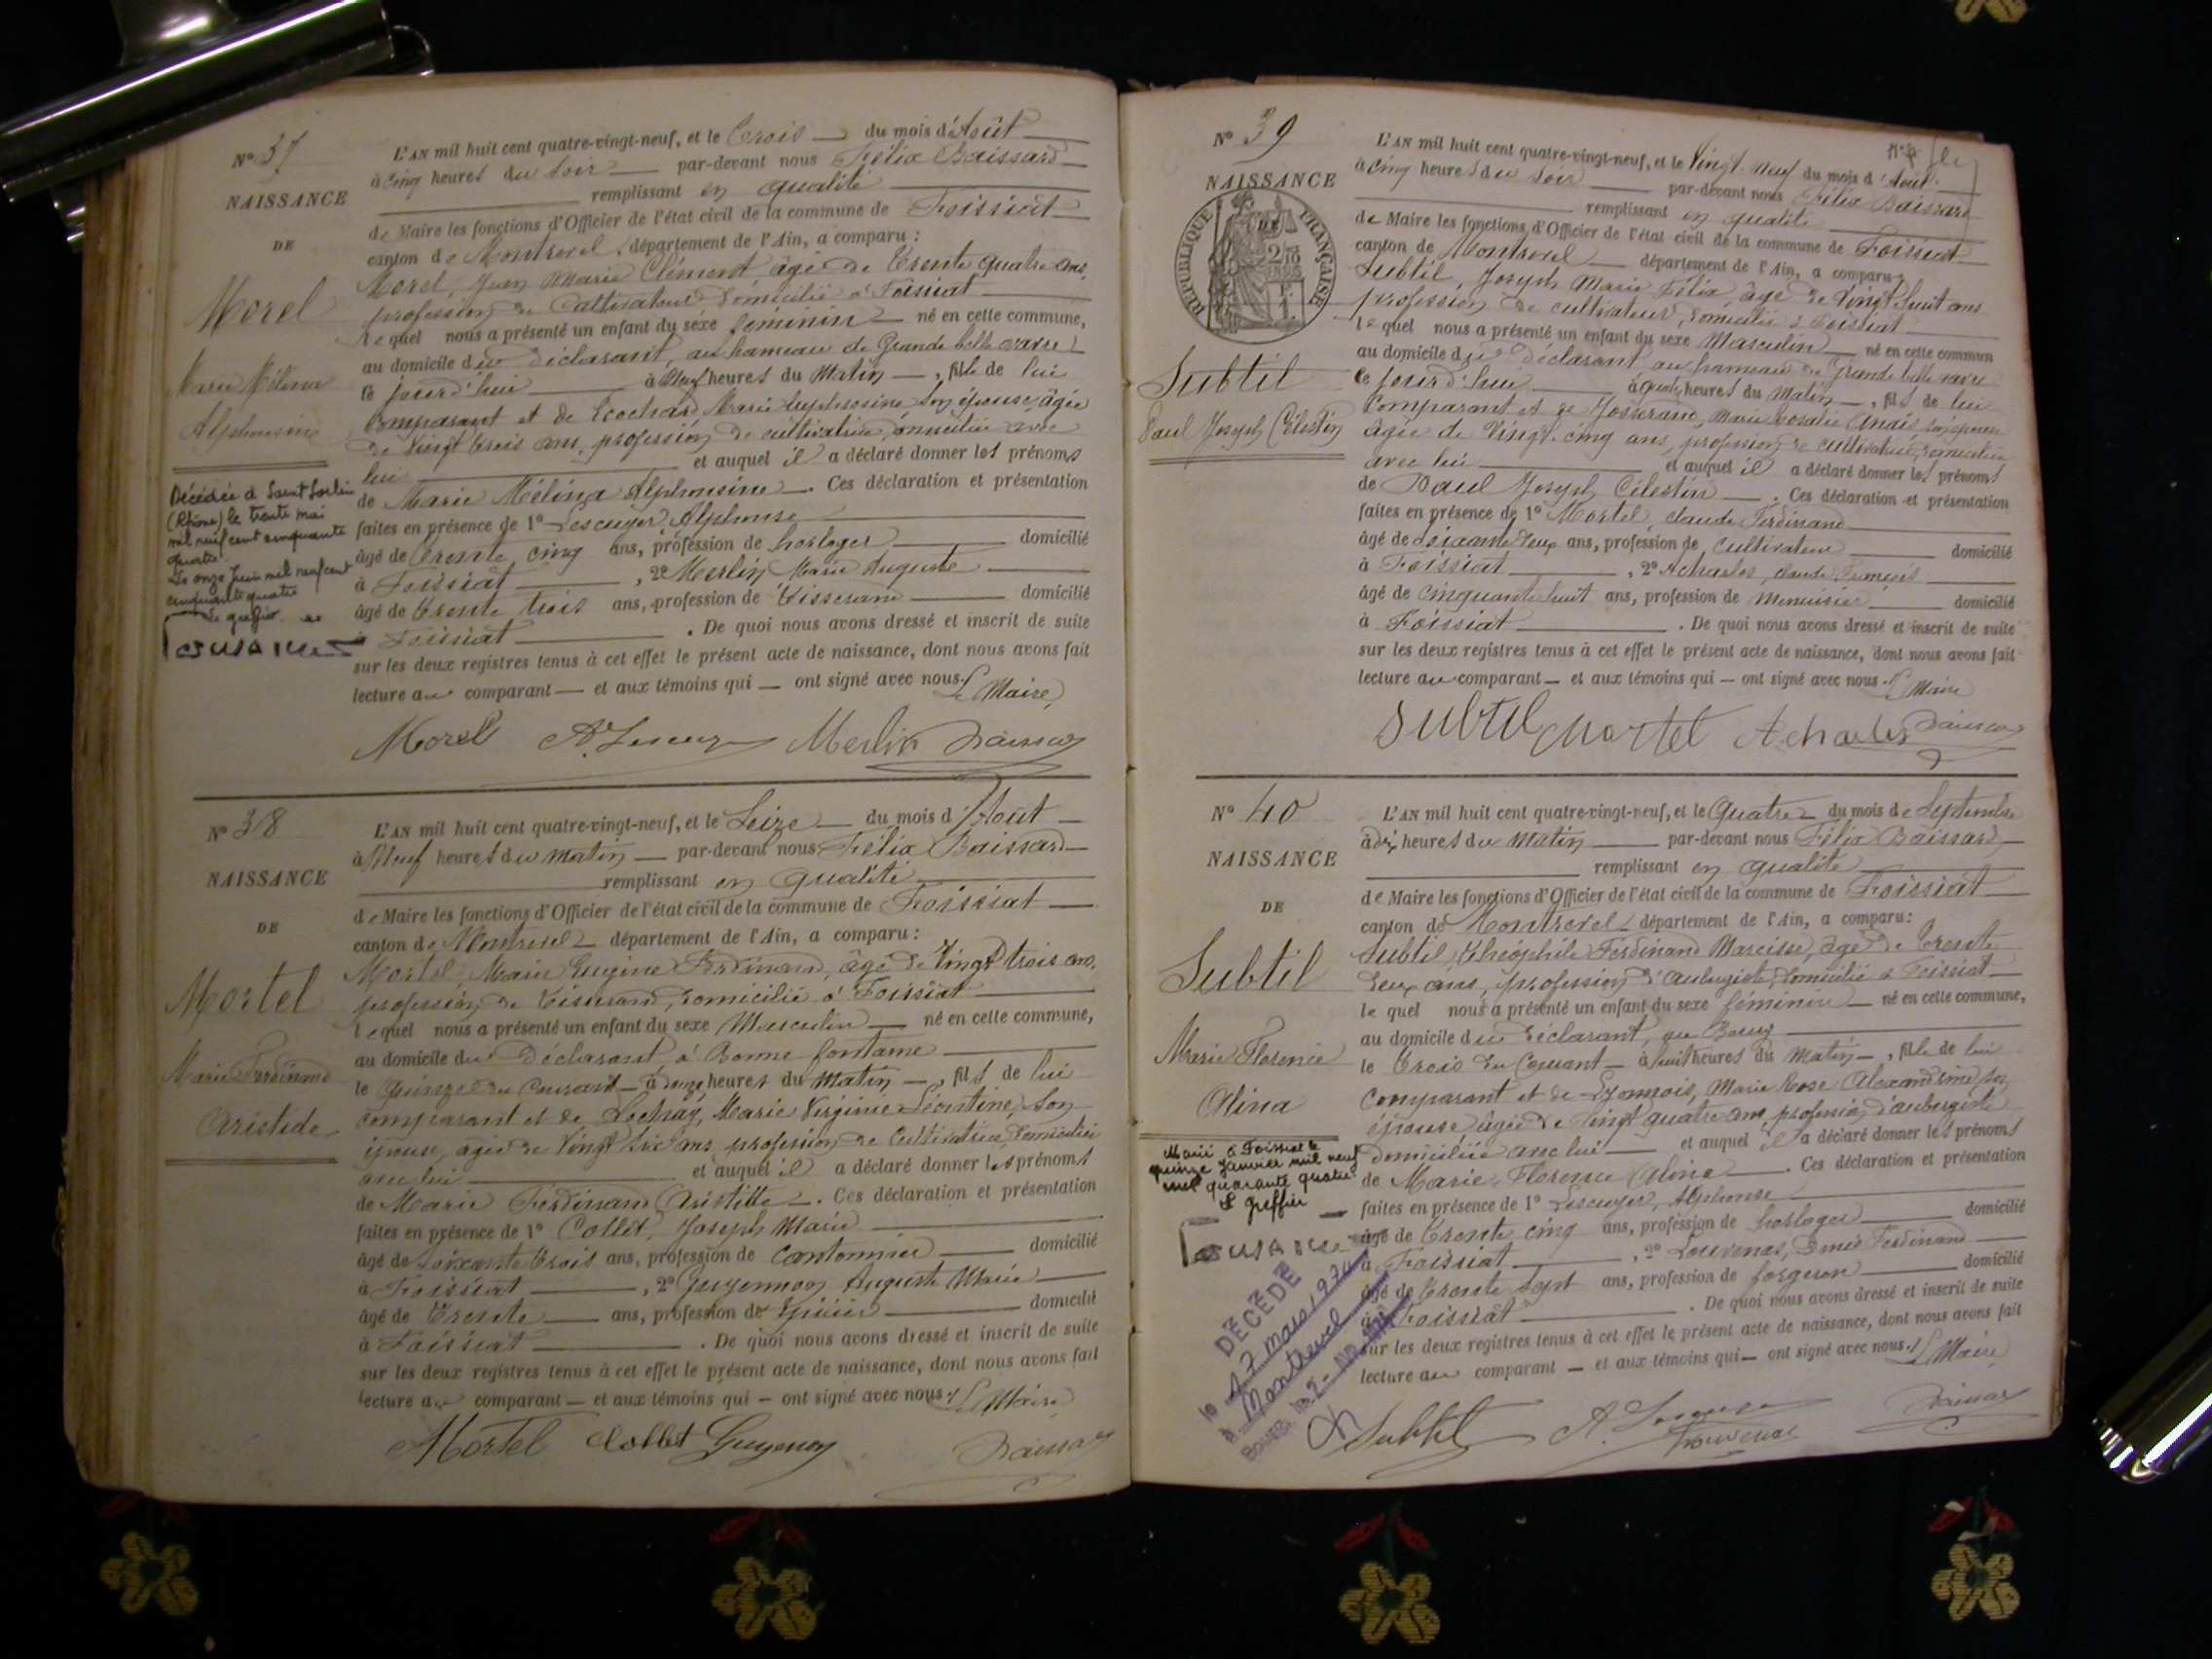 N° 37
NAISSANCE
DE
Morel
Marie Mélina
Alphonsine
Décédée à Saint Sorlin
(Rhône) le trente mai
mil neuf cent cinquante
quatre
Le onze Juin mil neuf cent
cinquante quatre
Le greffier
L'AN mil huit cent quatre-vingt-neuf, et le Trois du mois d'Août
à Cinq heures du Soir par-devant nous Félix Baissard
remplissant en qualité
de Maire les fonctions d'Officier de l'état civil de la commune de Foissiat
canton de Montrevel, département de l'Ain, a comparu :
Morel, Jean Marie Clément, âgé de Trente quatre ans,
profession de Cultivateur domicilié à Foissiat
lequel nous a présenté un enfant du sexe féminin né en cette commune,
au domicile du déclarant, au hameau de Grande belle vavre
le jourd'hui à Neuf heures du Matin, fille de lui
Comparant et de Ecochard Marie Euphrosine son épouse, âgée
de Vingt trois ans, profession de cultivatrice, domiciliée avec
lui et auquel il a déclaré donner les prénoms
de Marie Mélina Alphonsine. Ces déclaration et présentation
faites en présence de 1° Lescuyer, Alphonse
âgé de trente cinq ans, profession de horloger domicilié
à Foissiat, 2° Merlin Marie Auguste
âgé de trente trois ans, profession de Tisserand domicilié
à Foissiat. De quoi nous avons dressé et inscrit de suite
sur les deux registres tenus à cet effet le présent acte de naissance, dont nous avons fait
lecture au comparant et aux témoins qui ont signé avec nous. Le Maire,
Morel A. Lescuyer Merlin Baissard
N° 38
NAISSANCE
DE
Mortel
Marie Ferdinand
Aristide
L'AN mil huit cent quatre-vingt-neuf, et le Seize du mois d'Août
à Neuf heures du matin par-devant nous Félix Baissard
remplissant en qualité
de Maire les fonctions d'Officier de l'état civil de la commune de Foissiat
canton de Montrevel département de l'Ain, a comparu :
Mortel, Marie Eugène Ferdinand, âgé de Vingt trois ans,
profession de Tisserand, domicilié à Foissiat
lequel nous a présenté un enfant du sexe Masculin né en cette commune,
au domicile du Déclarant, à Bonne fontaine
le Quinze du Courant à onze heures du Matin, fils de lui
comparant et de Lochay, Marie Virginie Léontine, son
épouse, âgée de Vingt six ans, profession de Cultivatrice, domiciliée
avec lui et auquel il a déclaré donner les prénoms
de Marie Ferdinand Aristitte. Ces déclaration et présentation
faites en présence de 1° Collet, Joseph Marie
âgé de soixante trois ans, profession de Cantonnier domicilié
à Foissiat, 2° Guyennon, Auguste Marie
âgé de Trente ans, profession de Epicier domicilié
à Foissiat. De quoi nous avons dressé et inscrit de suite
sur les deux registres tenus à cet effet le présent acte de naissance, dont nous avons fait
lecture au comparant et aux témoins qui ont signé avec nous. Le Maire
Mortel Collet Guyennon Baissard
N° 39
NAISSANCE
DE
RÉPUBLIQUE FRANÇAISE
Subtil
Paul Joseph Célestin
L'AN mil huit cent quatre-vingt-neuf, et le Vingt-neuf du mois d'Août
à Cinq heures du Soir par-devant nous Félix Baissard
remplissant en qualité
de Maire les fonctions d'Officier de l'état civil de la commune de Foissiat
canton de Montrevel département de l'Ain, a comparu
Subtil, Joseph Marie Félix, âgé de Vingt huit ans
profession de cultivateur, domicilié à Foissiat
lequel nous a présenté un enfant du sexe Masculin né en cette commun
au domicile du Déclarant, au hameau de Grande belle vavre
le jourd'hui à quatre heures du Matin, fils de lui
Comparant et de Josserand, Marie Rosalie Anaïs, son épouse
âgée de Vingt-cinq ans, profession de cultivatrice, domiciliée
avec lui et auquel il a déclaré donner les prénoms
de Paul Joseph Célestin. Ces déclaration et présentation
faites en présence de 1° Mortel, claude Ferdinand
âgé de soixante deux ans, profession de Cultivateur domicilié
à Foissiat, 2° Acharles, claude François
âgé de cinquante huit ans, profession de Menuisier domicilié
à Foissiat. De quoi nous avons dressé et inscrit de suite
sur les deux registres tenus à cet effet le présent acte de naissance, dont nous avons fait
lecture au comparant et aux témoins qui ont signé avec nous. Le Maire
Subtil Mortel Acharles Baissard
N° 40
NAISSANCE
DE
Subtil
Marie Florence
Alina
Marié à Foissiat le
quinze Janvier mil neuf
cent quarante quatre
Le Greffier
DÉCÉDÉ
le 17 mars 1974
à Montrevel
L'AN mil huit cent quatre-vingt-neuf, et le Quatre du mois de Septembre
à dix heures du Matin par-devant nous Félix Baissard
remplissant en qualité
de Maire les fonctions d'Officier de l'état civil de la commune de Foissiat
canton de Montrevel département de l'Ain, a comparu :
Subtil, Théophile Ferdinand Narcisse, âgé de Trente
deux ans, profession d'aubergiste, domicilié à Foissiat
lequel nous a présenté un enfant du sexe féminin né en cette commune,
au domicile du Déclarant, au Bourg
le Trois du Courant à huit heures du Matin, fille de lui
Comparant et de Lyonnois, Marie Rose Alexandrine, son
épouse âgée de Vingt quatre ans, profession d'aubergiste
domiciliée avec lui et auquel il a déclaré donner les prénoms
de Marie Florence Aline. Ces déclaration et présentation
faites en présence de 1° Lescuyer, Alphonse
âgé de Trente cinq ans, profession de horloger domicilié
à Foissiat, 2° Louvenas, Denis Ferdinand
âgé de Trente Sept ans, profession de forgeron domicilié
à Foissiat. De quoi nous avons dressé et inscrit de suite
sur les deux registres tenus à cet effet le présent acte de naissance, dont nous avons fait
lecture au comparant et aux témoins qui ont signé avec nous. Le Maire
Subtil A. Lescuyer Baissard
Louvenas